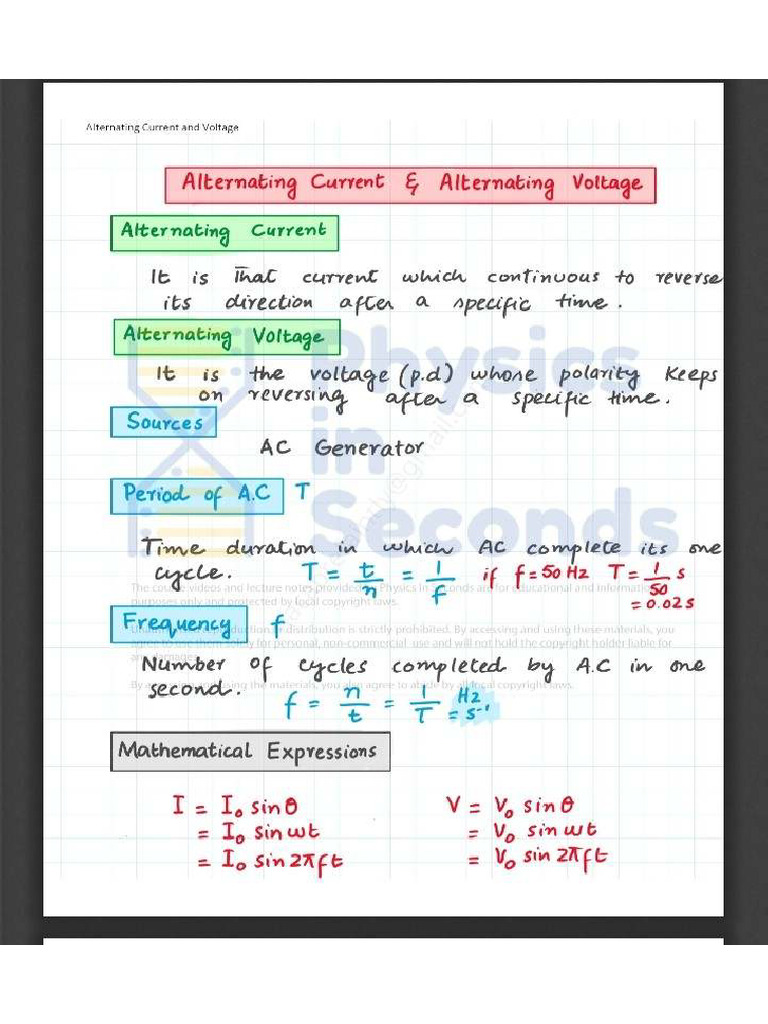 Alternating Current and Voltage
Alternating Current & Alternating Voltage
Alternating Current
It is That current which continuous to reverse
its direction after a specific time.
Alternating Voltage
It is the voltage (p.d) whose polarity keeps
on reversing after a specific time.
Sources
AC Generator
Period of A.C T
Time duration in which AC complete its one
cycle. T = t/n = 1/f if f = 50 Hz T = 1/50 s
= 0.02 s
Frequency f
Number of cycles completed by A.C in one
second.
f = n/t = 1/T Hz
= s⁻¹
Mathematical Expressions
I = I₀ sin θ V = V₀ sin θ
= I₀ sin ωt = V₀ sin ωt
= I₀ sin 2πft = V₀ sin 2πft
Physics
in
Seconds
The course videos and lecture notes provided Physics in Seconds are for educational and
purposes only and protected by local copyright laws.
or distribution is strictly prohibited. By accessing and using these materials, you
agree to use them solely for personal, non-commercial use and will not hold the copyright holder liable for
any damages
using the materials, you also agree to abide by all local copyright laws.